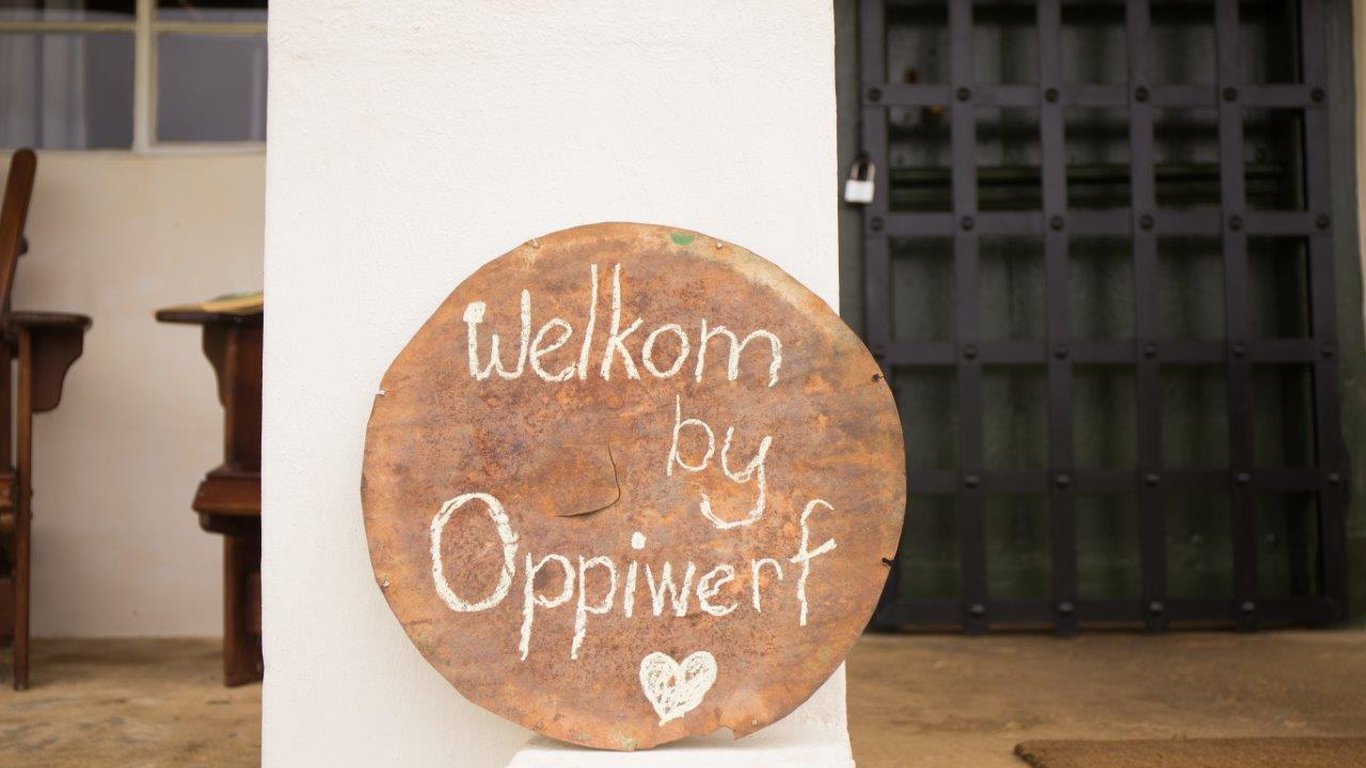 Welkom
by
Oppiwerf